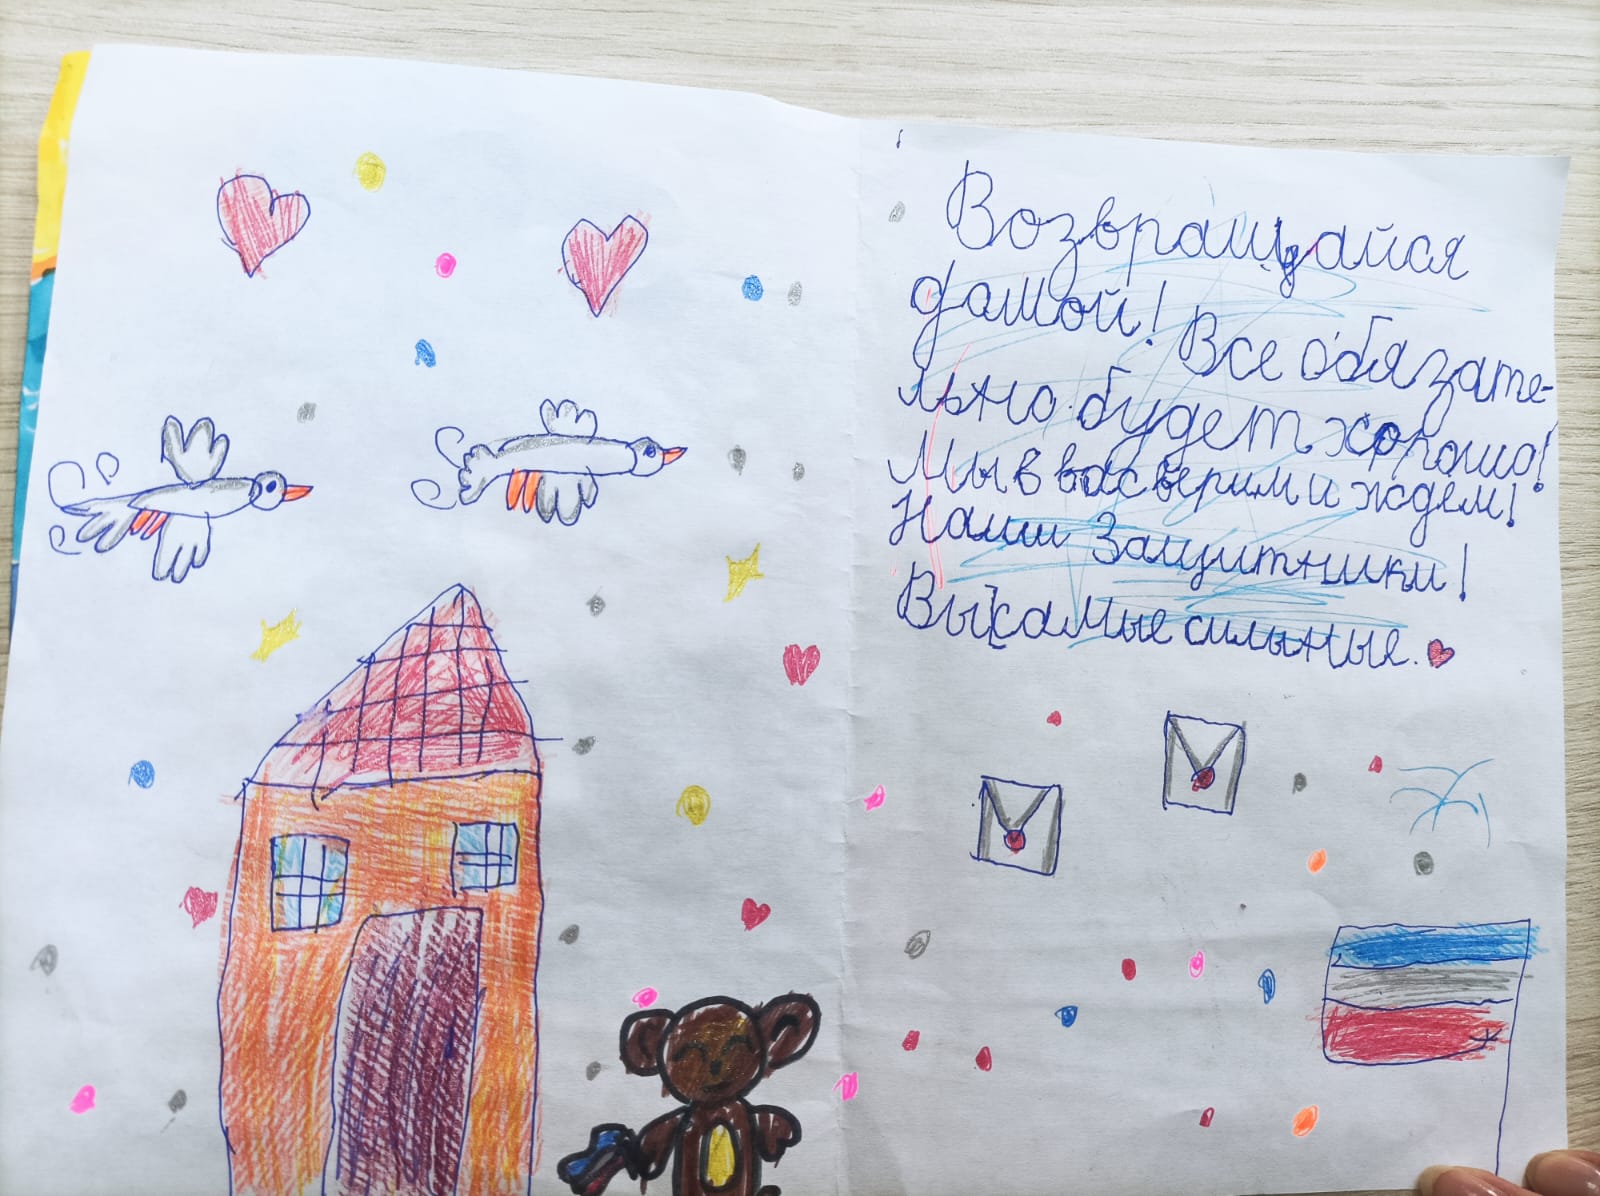 Возвращайся
дамой! Все обязате-
льно будет хорошо!
Мы в вас верим и ждём!
Наши Защитники!
Вы самые сильные.